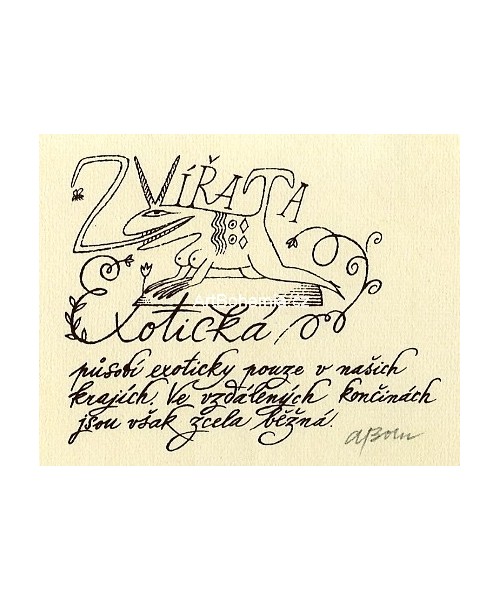 ZVÍŘATA
ArtBohemia.cz
Exotická
působí exoticky pouze v našich
krajích. Ve vzdálených končinách
jsou však zcela běžná.
ABorn